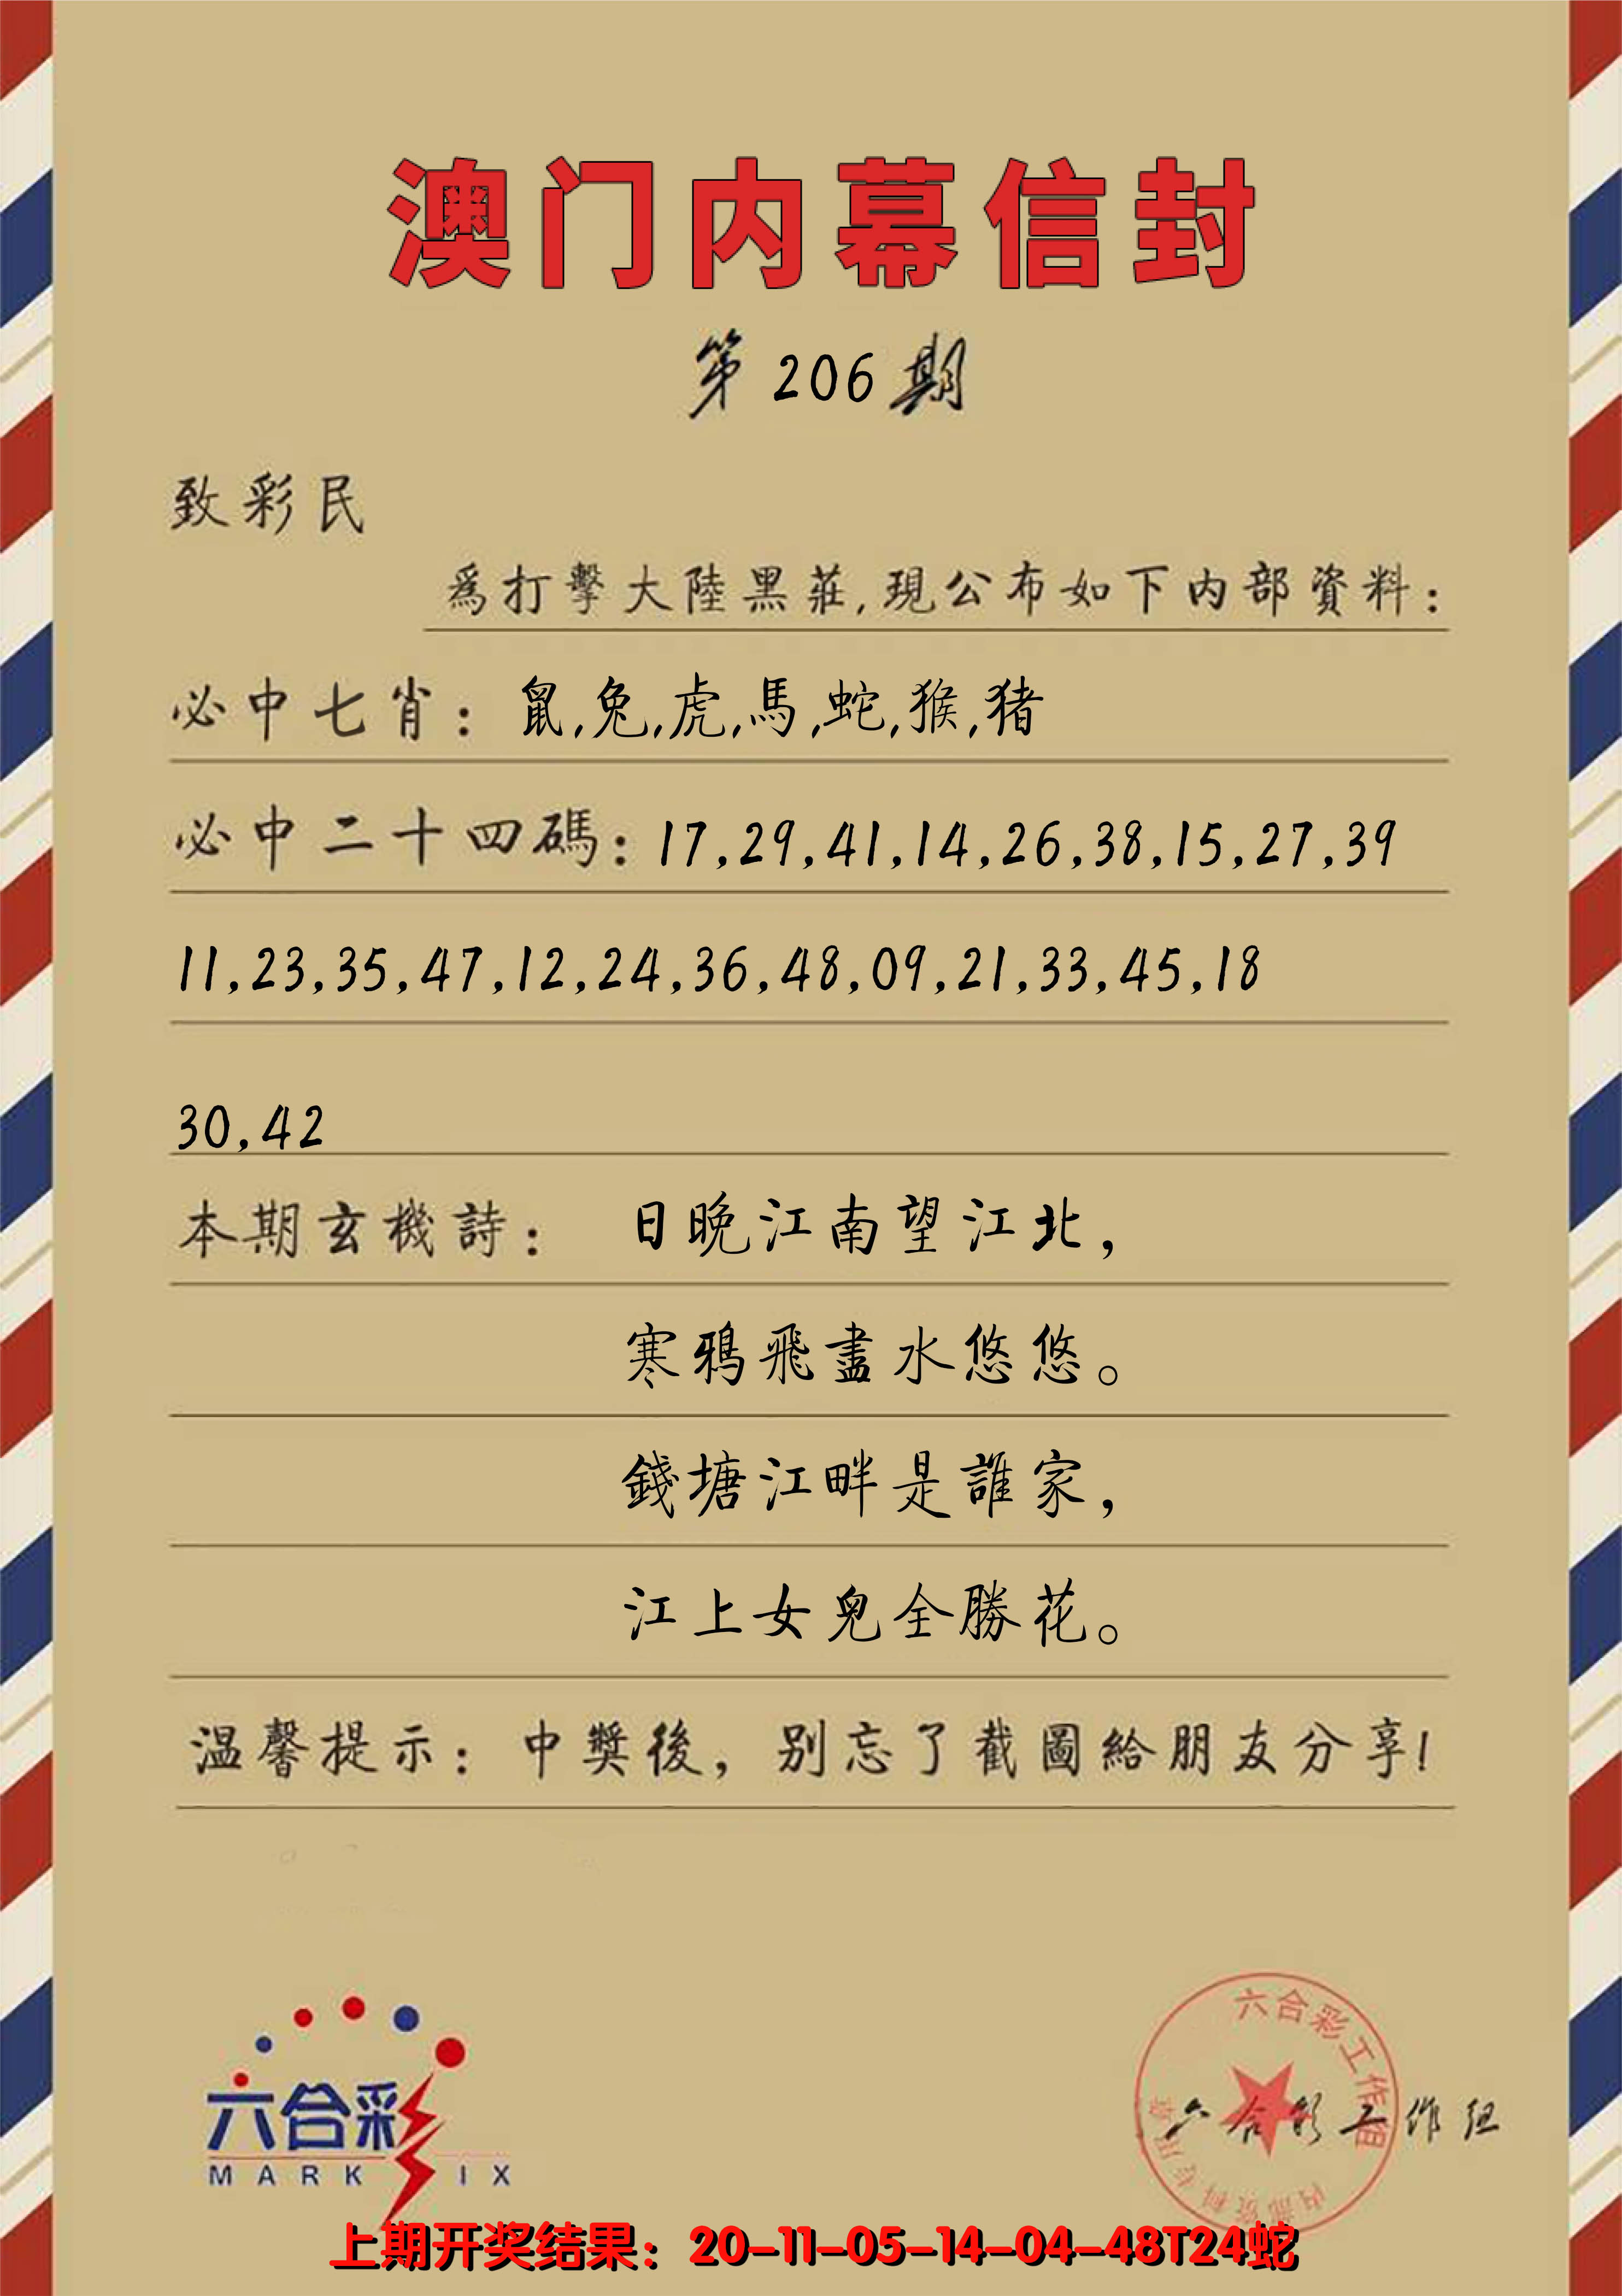 澳门内幕信封
第206期
致彩民
爲打擊大陸黑莊,現公布如下内部資料:
必中七肖: 鼠,兔,虎,馬,蛇,猴,猪
必中二十四碼: 17,29,41,14,26,38,15,27,39
11,23,35,47,12,24,36,48,09,21,33,45,18
30,42
本期玄機詩: 日晚江南望江北,
寒鴉飛盡水悠悠。
錢塘江畔是誰家,
江上女兒全勝花。
温馨提示: 中獎後, 别忘了截圖給朋友分享!
六合彩
MARK SIX
六合彩工作组
内部资料专用章
六合彩工作组
上期开奖结果: 20-11-05-14-04-48T24蛇